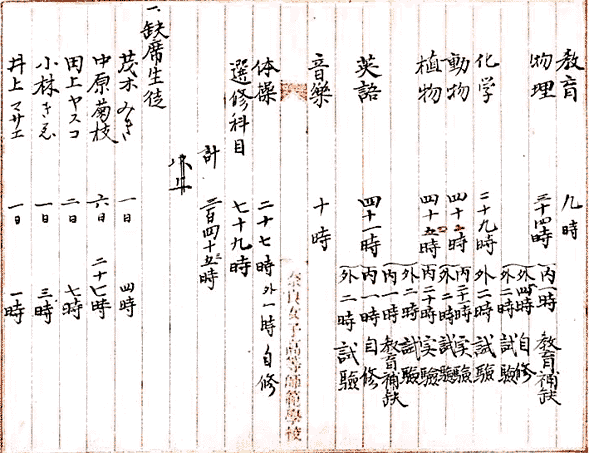 教育 九時
物理 三十四時 内一時 教育補缺
外四時 自修
外二時 試驗
化学 二十九時 外二時 試驗
動物 四十二時 内二十一時 実驗
外二時 試驗
植物 四十五時 内二十時 実驗
外二時 試驗
内一時 教育補缺
英語 四十一時 内一時 自修
外二時 試驗
音樂 十時
奈良女子高等師範學校
体操 二十七時 外一時 自修
選修科目 七十九時
計 三百四十五時
一、缺席生徒
茂木みき 一日 四時
中原菊枝 六日 二十七時
田上ヤスコ 二日 七時
小林きゑ 一日 三時
井上マサエ 一日 一時